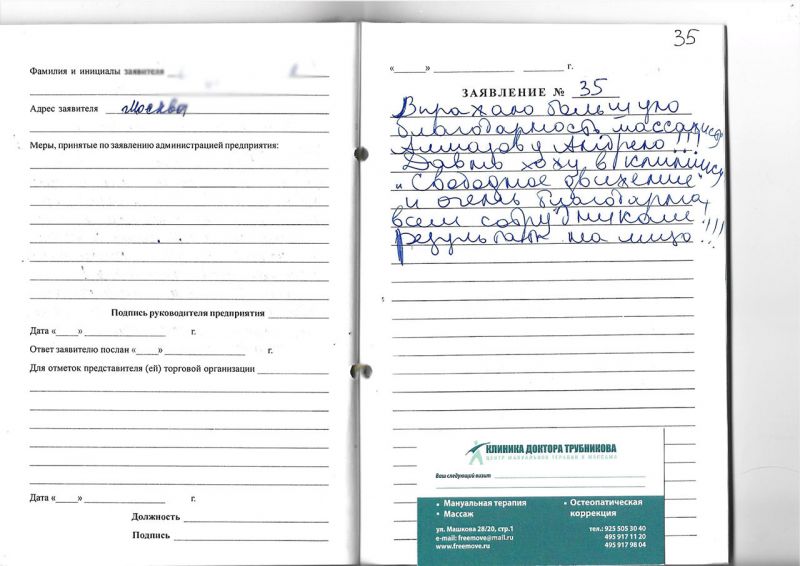 35
Фамилия и инициалы заявителя
Адрес заявителя Москва
Меры, принятые по заявлению администрацией предприятия:
Подпись руководителя предприятия
Дата «___» г.
Ответ заявителю послан «___» г.
Для отметок представителя (ей) торговой организации
Дата «___» г.
Должность
Подпись
«___» г.
ЗАЯВЛЕНИЕ № 35
Выражаю большую
благодарность массажисту
Алмазову Андрею!!!
Давно хожу в клинику
"Свободное движение"
и очень благодарна
всем сотрудникам!
Результат на лицо!!!
КЛИНИКА ДОКТОРА ТРУБНИКОВА
ЦЕНТР МАНУАЛЬНОЙ ТЕРАПИИ И МАССАЖА
Ваш следующий визит
• Мануальная терапия
• Массаж
• Остеопатическая
коррекция
ул. Машкова 28/20, стр.1
e-mail: freemove@mail.ru
www.freemove.ru
тел.: 925 505 30 40
495 917 11 20
495 917 98 04